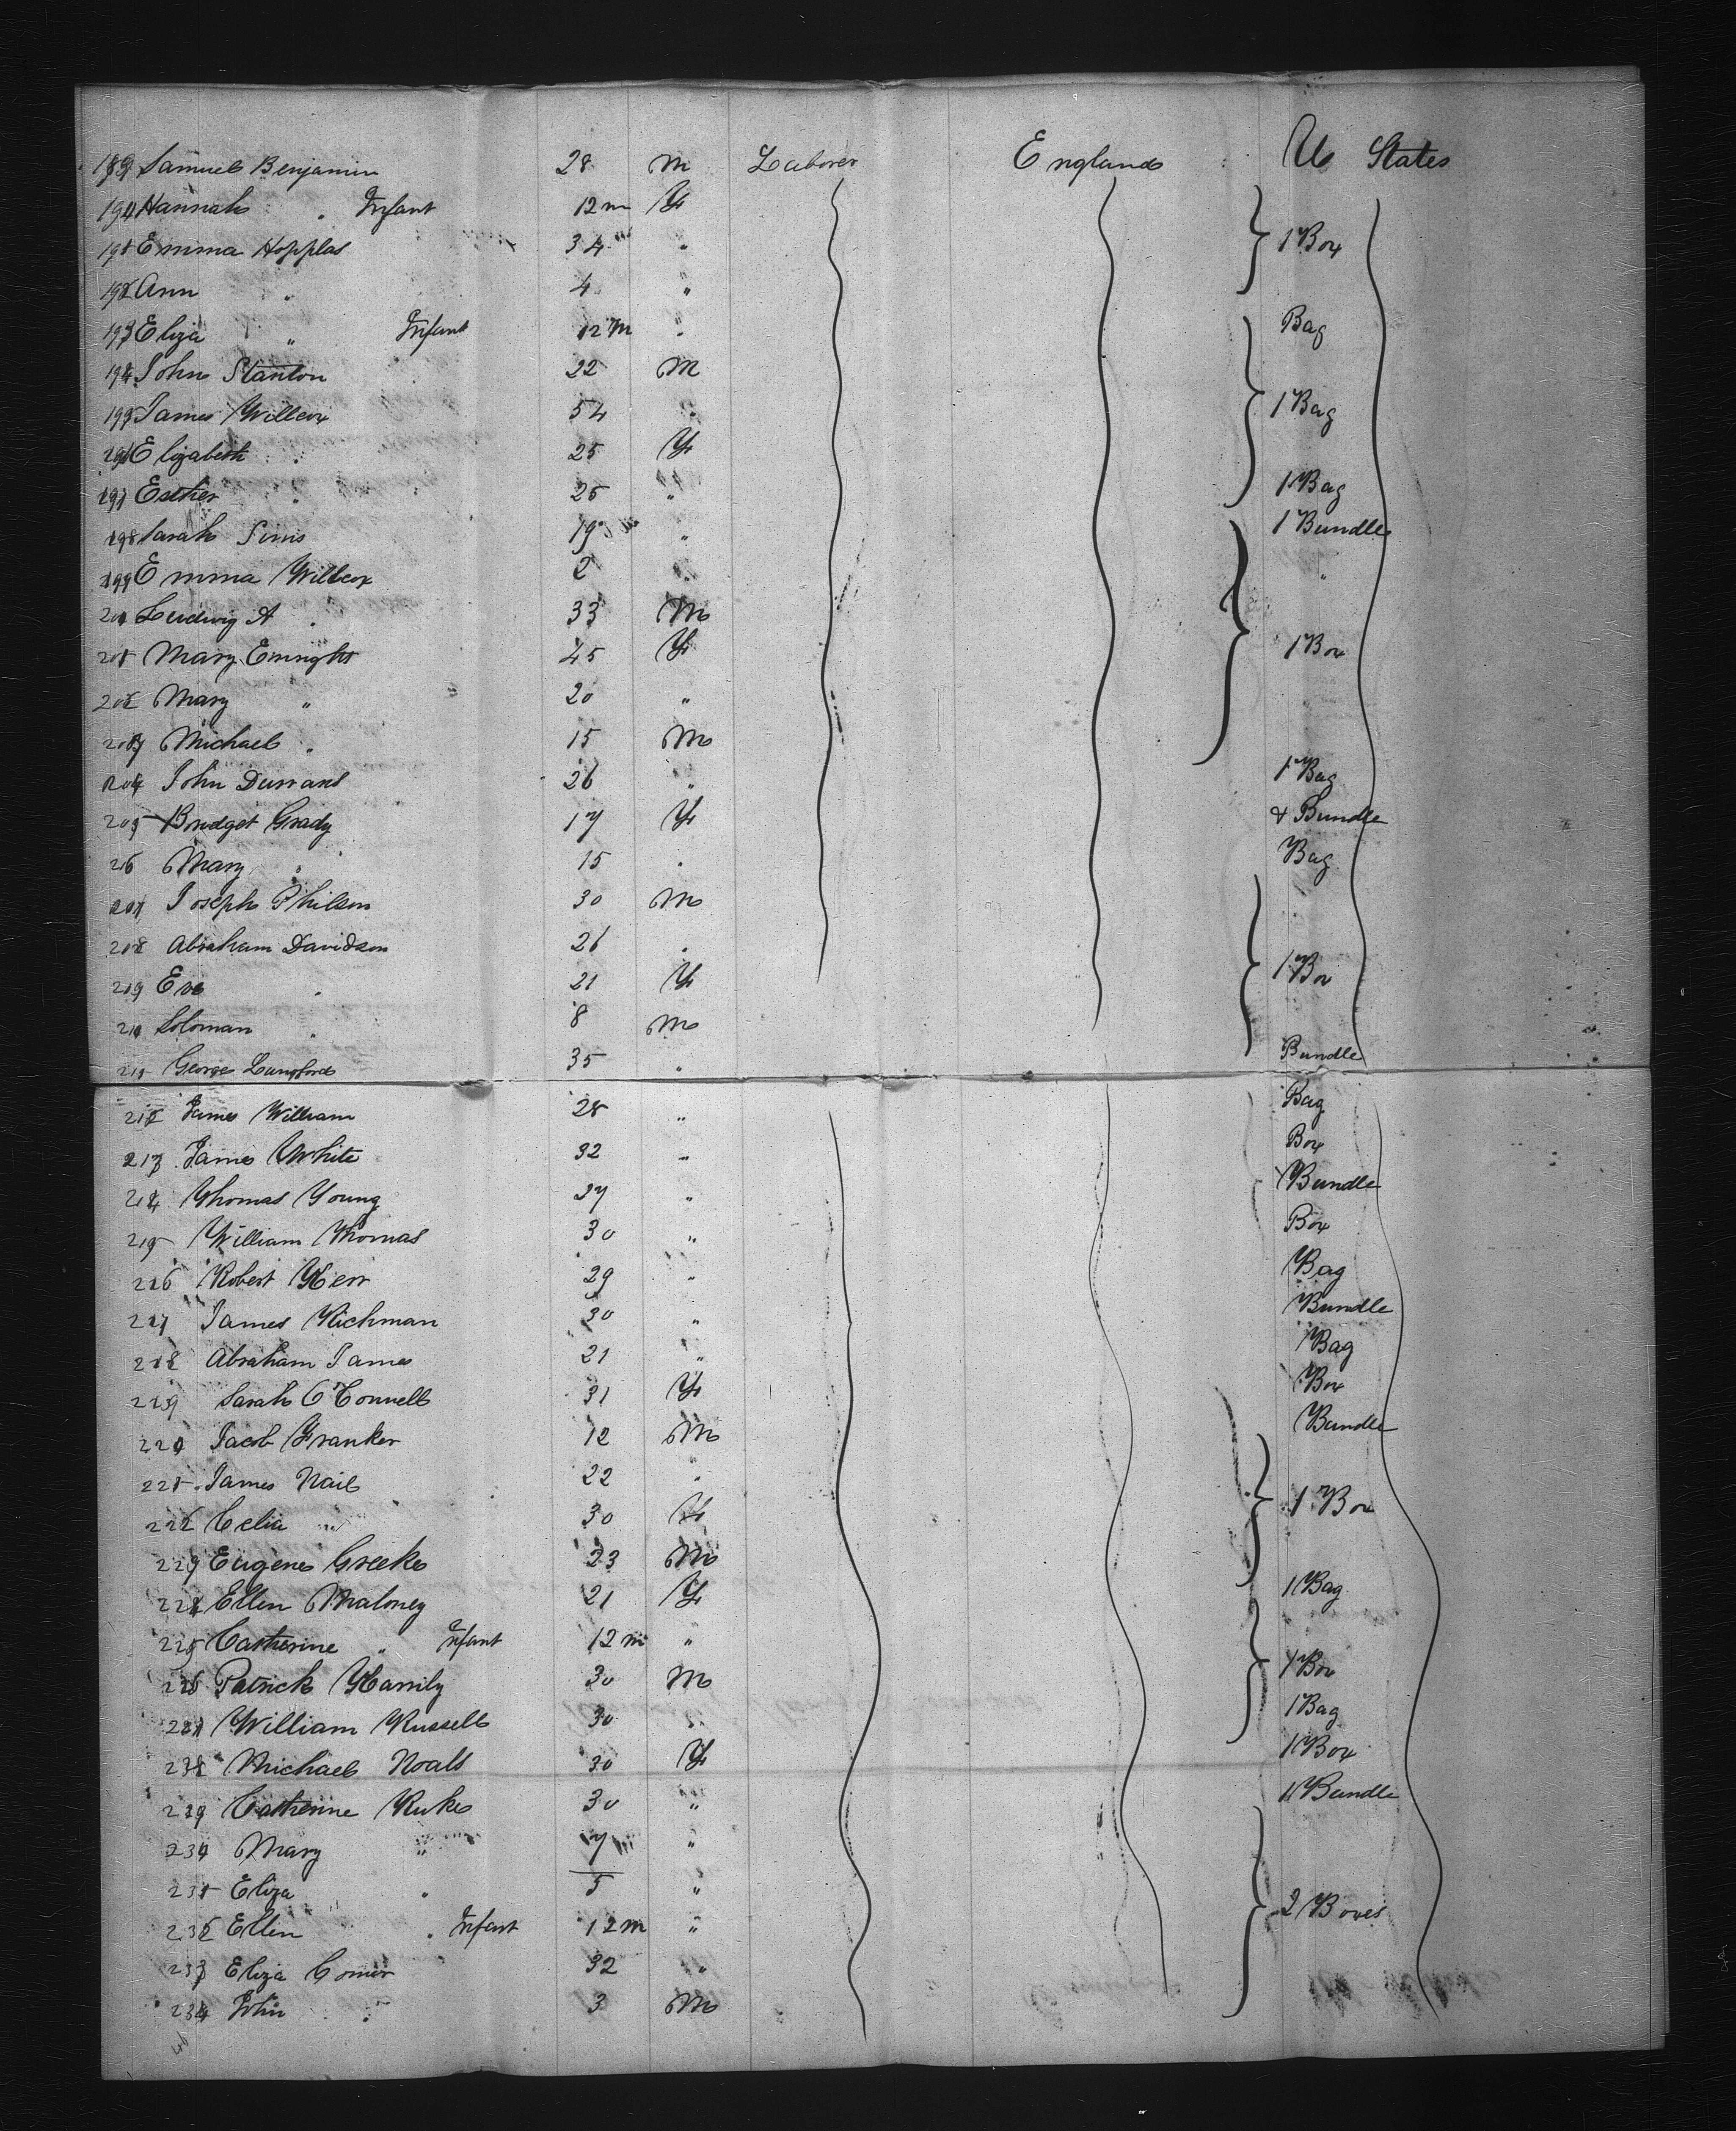 189 Samuel Benjamin 28 M Laborer England U States
190 Hannah " Infant 12m F
191 Emma Hopplas 34 " 1 Box
192 Ann " 4 "
193 Eliza " Infant 12m " Bag
194 John Stanton 22 M
195 James Willcox 54 " 1 Bag
196 Elizabeth " 25 F
197 Esther " 25 " 1 Bag
198 Sarah Sims 19 " 1 Bundle
199 Emma Willcox 2 " "
200 Ludwig A " 33 M
201 Mary Enright 45 F 1 Box
202 Mary " 20 "
203 Michael " 15 M
204 John Durrant 26 " 1 Bag
205 Bridget Grady 17 F & Bundle
206 Mary " 15 " Bag
207 Joseph Philson 30 M
208 Abraham Davidson 26 "
209 Eve " 21 F 1 Box
210 Soloman " 8 M
211 George Lungford 35 " Bundle
212 James William 28 " Bag
213 James White 32 " Box
214 Thomas Young 27 " Bundle
215 William Thomas 30 " Box
216 Robert Kerr 29 " Bag
217 James Richman 30 " Bundle
218 Abraham James 21 " Bag
219 Sarah O'Connell 31 F Box
220 Jacob Franker 12 M Bundle
221 James Nail 22 "
222 Celia " 30 F 1 Box
223 Eugene Greeke 23 M
224 Ellen Maloney 21 F 1 Bag
225 Catherine " Infant 12m "
226 Patrick Harrily 30 M 1 Box
227 William Russell 30 " 1 Bag
228 Michael Noals 30 F 1 Box
229 Catherine Ruke 30 " 1 Bundle
230 Mary " 7 "
231 Eliza " 5 "
232 Ellen " Infant 12m " 2 Boxes
233 Eliza Comer 32 "
234 John " 3 M